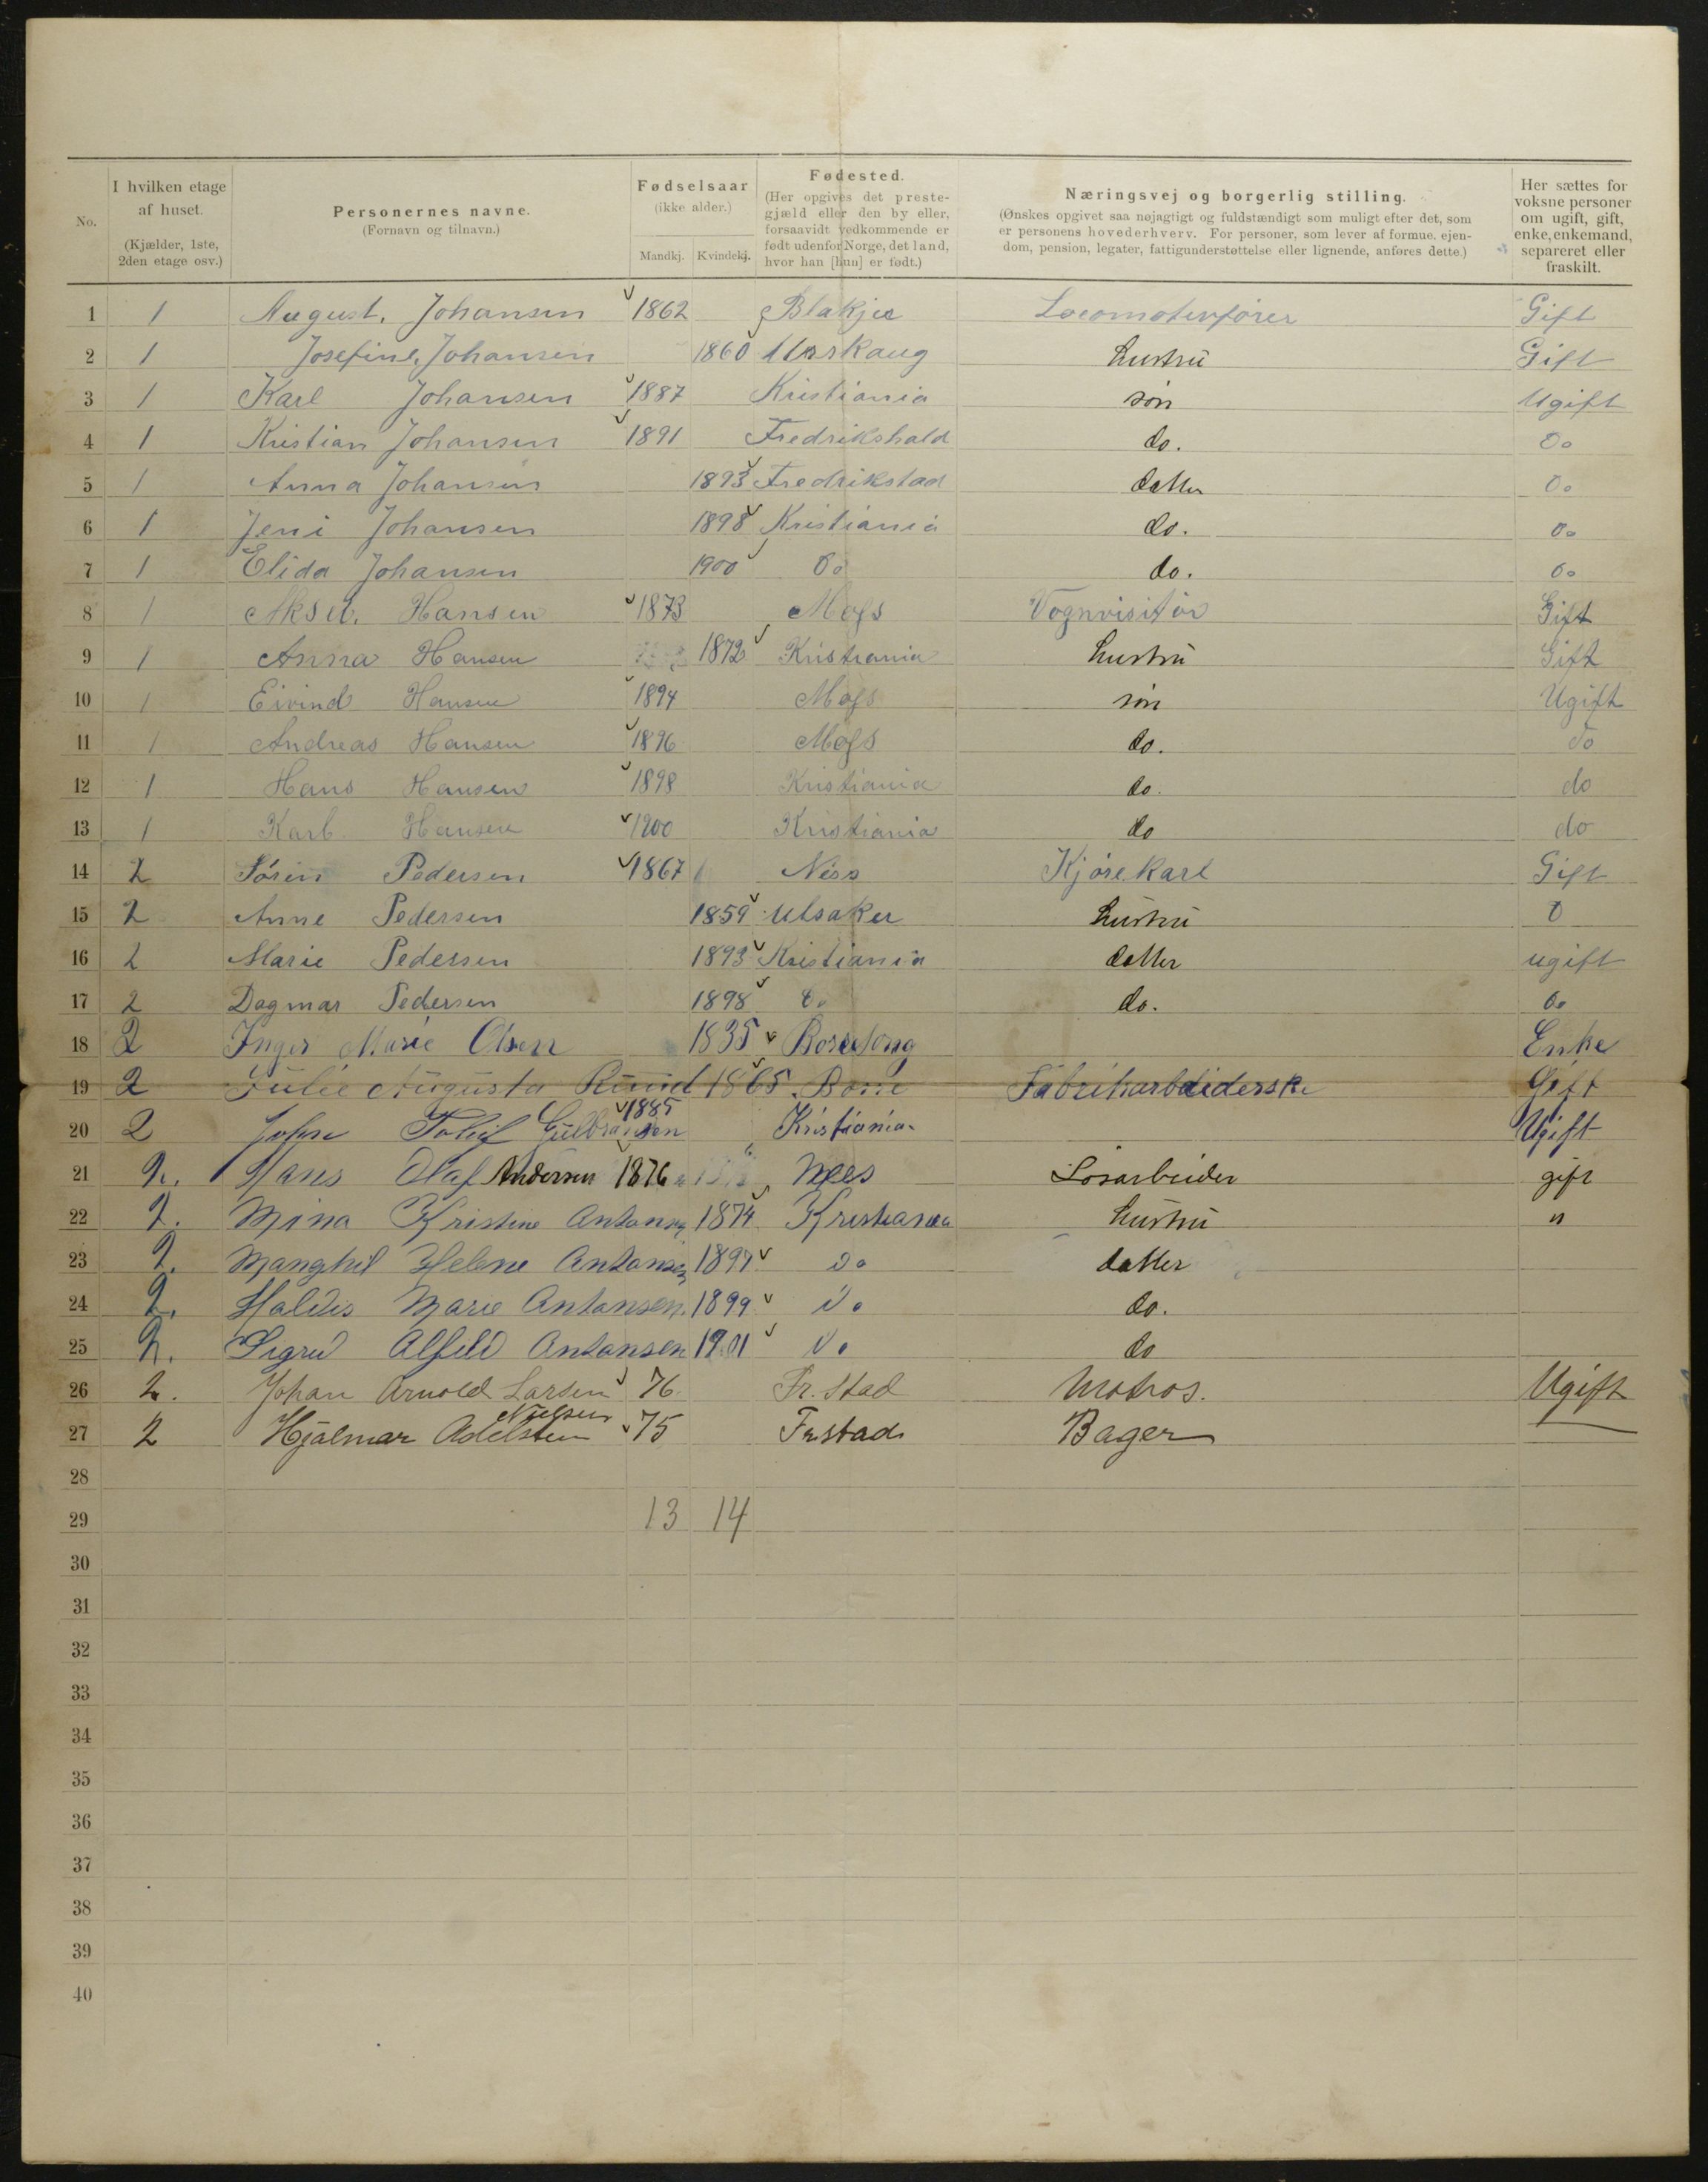 No.
I hvilken etage af huset. (Kjælder, 1ste, 2den etage osv.)
Personernes navne. (Fornavn og tilnavn.)
Fødselsaar (ikke alder.) Mandkj. Kvindekj.
Fødested. (Her opgives det prestegjæld eller den by eller, forsaavidt vedkommende er født udenfor Norge, det land, hvor han [hun] er født.)
Næringsvej og borgerlig stilling. (Ønskes opgivet saa nøjagtigt og fuldstændigt som muligt efter det, som er personens hovederhverv. For personer, som lever af formue, ejendom, pension, legater, fattigunderstøttelse eller lignende, anføres dette.)
Her sættes for voksne personer om ugift, gift, enke, enkemand, separeret eller fraskilt.
1 1 August. Johansen 1862 Blakjer Locomotivfører Gift
2 1 Josefine Johansen 1860 Urskaug hustru Gift
3 1 Karl Johansen 1887 Kristiania søn Ugift
4 1 Kristian Johansen 1891 Fredrikshald do. Do
5 1 Anna Johansen 1893 Fredrikstad datter Do
6 1 Jeni Johansen 1898 Kristiania do. Do
7 1 Elida Johansen 1900 Do do. Do
8 1 Aksel. Hansen 1873 Moss Vognvisitør Gift
9 1 Anna Hansen 1872 Kristiania hustru Gift
10 1 Eivind Hansen 1894 Moss søn Ugift
11 1 Andreas Hansen 1896 Moss do. do
12 1 Hans Hansen 1898 Kristiania do. do
13 1 Karl Hansen 1900 Kristiania do do
14 2 Sørin Pedersen 1867 Ness Kjørekarl Gift
15 2 Anne Pedersen 1859 Ulsaker hustru
16 2 Marie Pedersen 1893 Kristiania datter ugift
17 2 Dagmar Pedersen 1898 Do do. Do
18 2 Inger Marie Olsen 1835 Enke
19 2 Julie Augusta Ruud 1865 Borre Fabrikarbeiderske Gift
20 2 John Gulbransen 1885 Kristiania Ugift
21 2. Hans Olaf Andersen 1876 Nees Løsarbeider gift
22 2. Mina Kristine Antonsen 1874 Kristiania hustru "
23 2. Manghil Helene Antonsen 1897 do datter
24 2. Haldis Marie Antonsen. 1899 do do.
25 2. Sigrid Alfild Antonsen 1901 do do
26 2. Johan Arnold Larsen 76 Fr.stad Matros. Ugift
27 2 Hjalmar Adelsten Nielsen 75 Fr.stad Bager
28
29 13 14
30
31
32
33
34
35
36
37
38
39
40